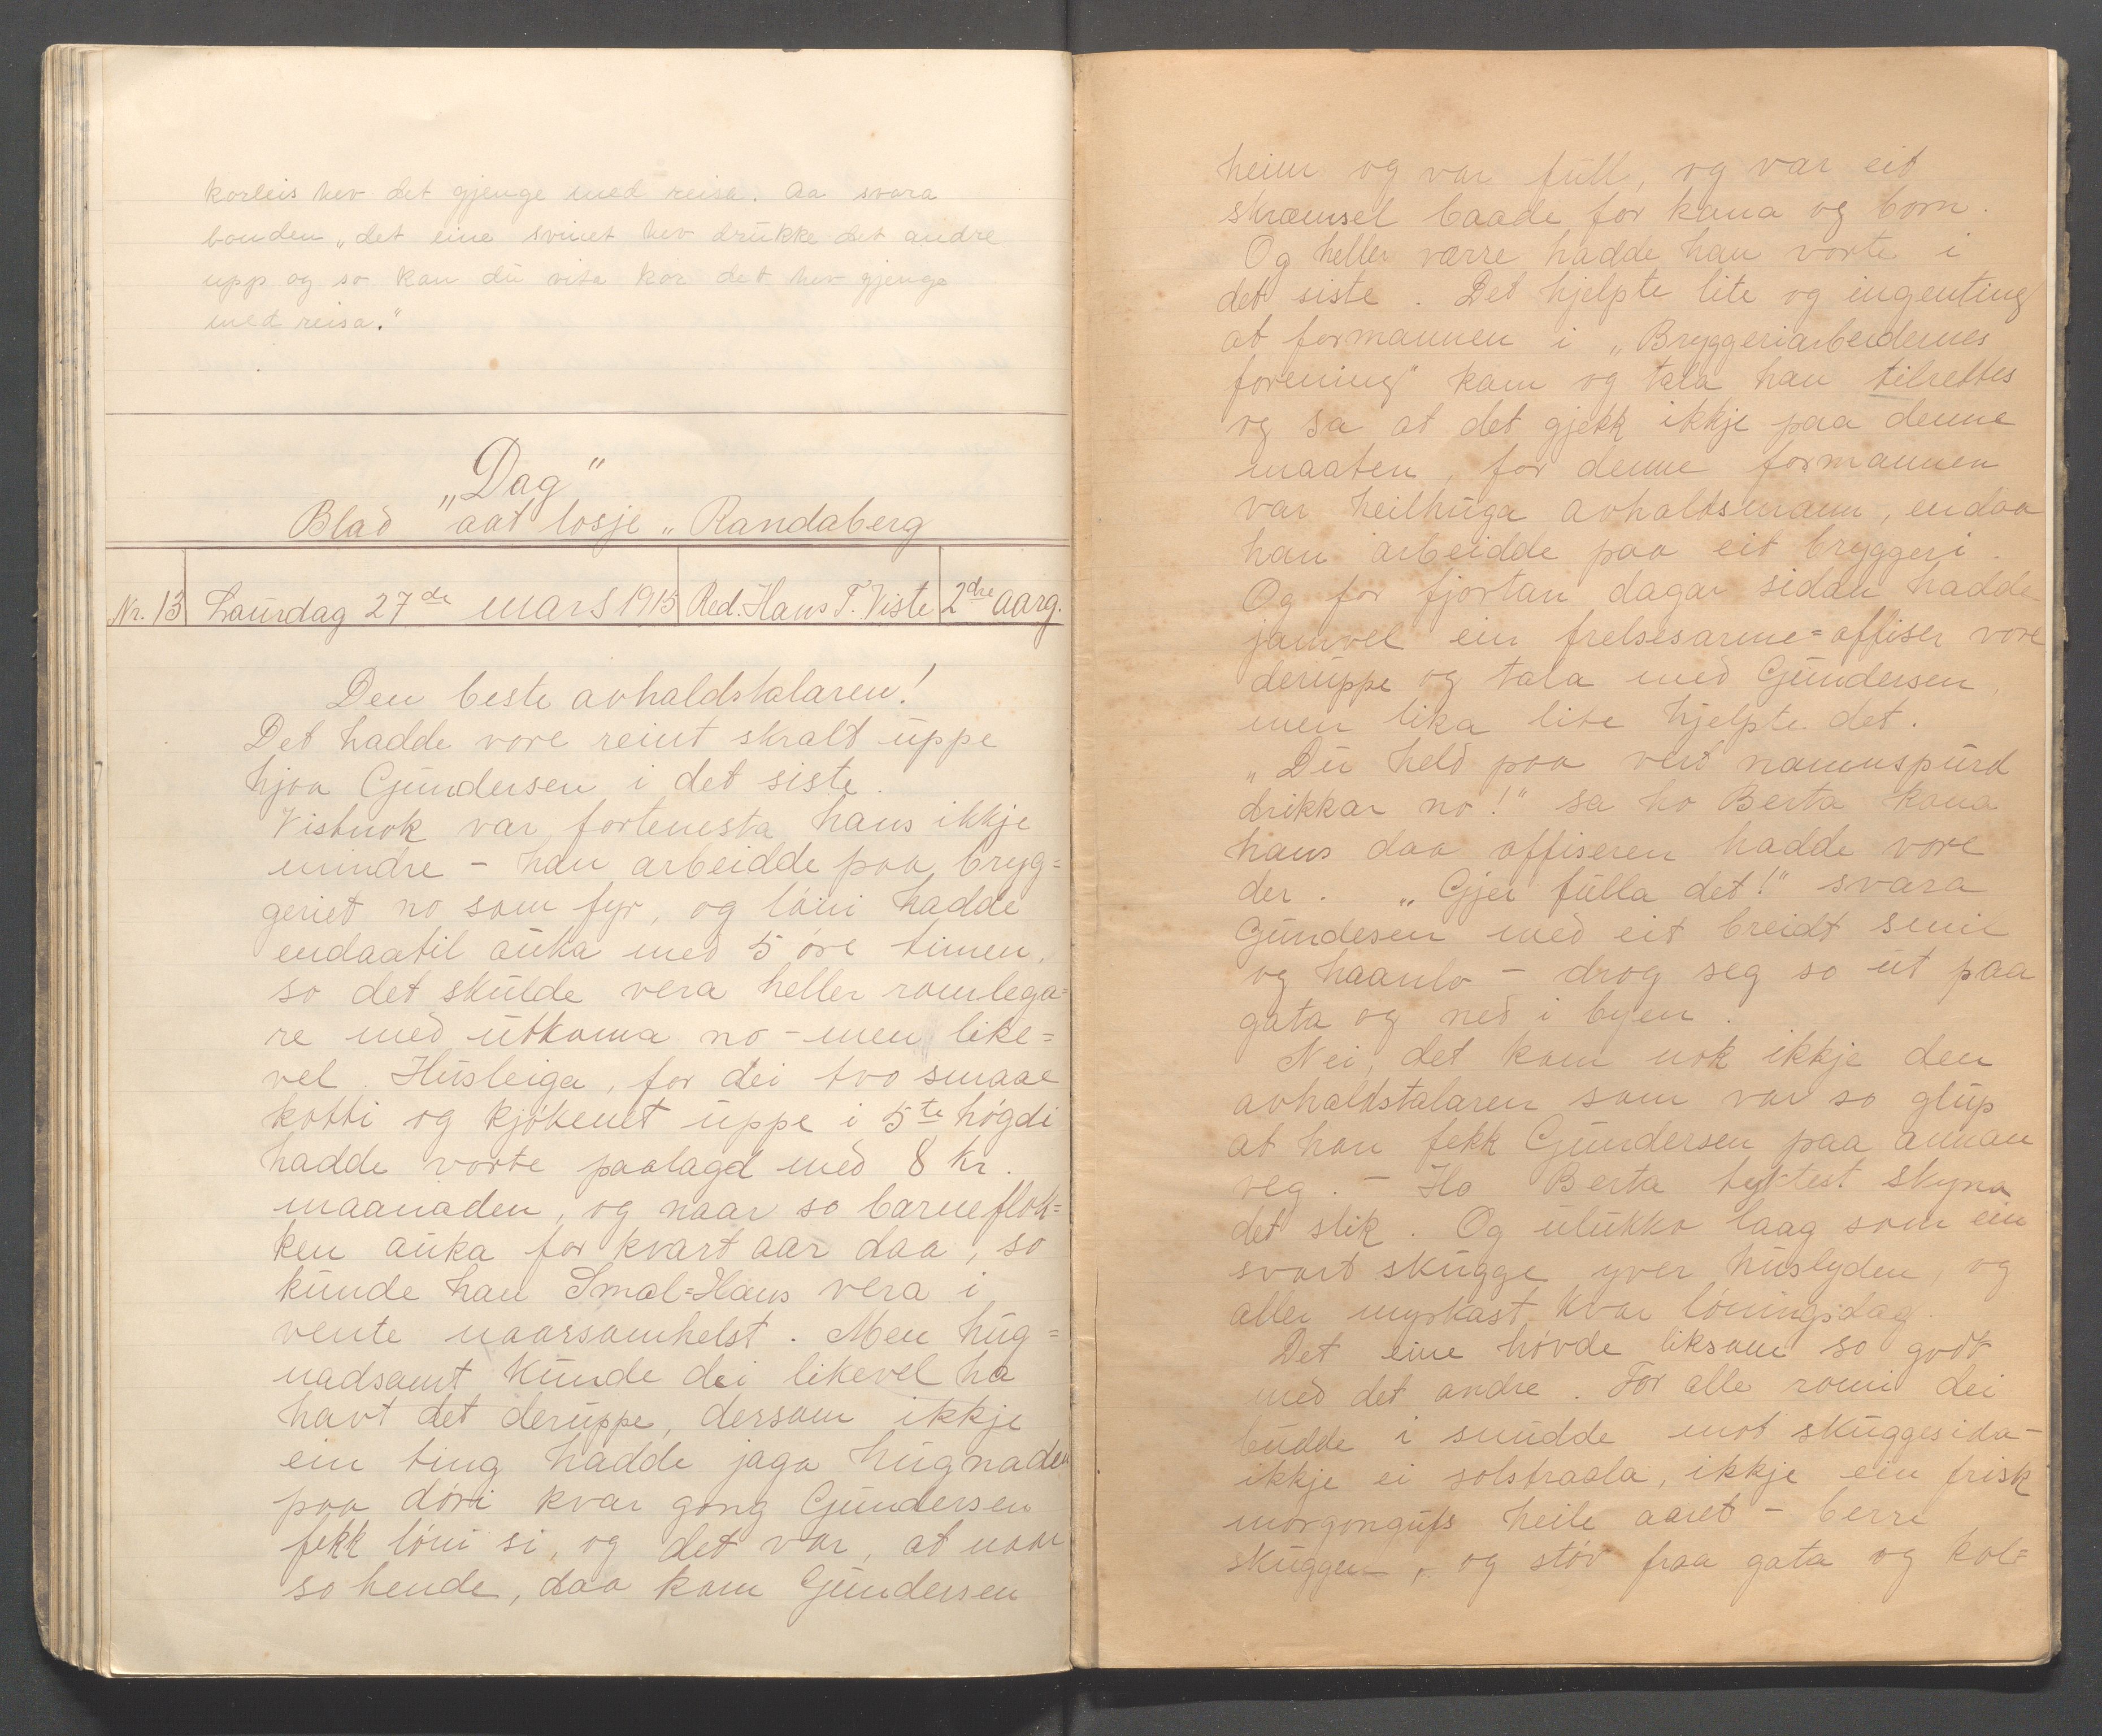 korleis hev det gjenge med reisa. Aa svara
bonden „det eine svinet hev drukke det andre
upp og so kan du vita kor det hev gjenge
med reisa."
„Dag"
Blad aat losje „Randaberg
Nr. 13 Laurdag 27de mars 1915 Red. Hans T. Viste 2dre aarg.
Den beste avhaldstalaren!
Det hadde vore reint skralt uppe
hjaa Gundersen i det siste.
Vistnok var fortenesta hans ikkje
mindre - han arbeidde paa bryg=
geriet no som fyr, og løni hadde
endaatil auka med 5 øre timen,
so det skulde vera heller romlega=
re med utkoma no - men like=
vel. Husleiga, for dei tvo smaae
kotti og kjøkenet uppe i 5te høgdi
hadde vorte paalagd med 8 kr.
maanaden, og naar so barneflok=
ken auka for kvart aar daa, so
kunde han Smal=Hans vera i
vente naarsomhelst. Men hug=
nadsamt kunde dei likevel ha
havt det deruppe, dersom ikkje
ein ting hadde jaga hugnaden
paa døri kvar gong Gundersen
fekk løni si, og det var, at naar
so hende, daa kom Gundersen
heim og var full, og var eit
skræmsel baade for kona og born.
Og heller værre hadde han vorte i
det siste. Det hjelpte lite og ingenting
at formannen i „Bryggeriarbeidernes
forening" kom og tala han tilrettes
og sa at det gjekk ikkje paa denne
maaten, for denne formannen
var heilhuga avhaldsmann, endaa
han arbeidde paa eit bryggeri.
Og for fjortan dagar sidan hadde
jamvel ein frelsesarme=offiser vore
deruppe og tala med Gundersen,
men lika lite hjelpte det.
„Du held paa verd namnspurd
drikkar no!" sa ho Berta kona
hans daa offiseren hadde vore
der. „Gjer fulla det!" svara
Gundesen med eit breidt smil
og haanlo - drog seg so ut paa
gata og ned i byen.
Nei, det kom nok ikkje den
avhaldstalaren som var so glup
at han fekk Gundersen paa annan
veg. - Ho Berta tyktest skyna
det slik. Og ulukka laag som ein
svart skugge yver huslyden, og
aller myrkast kvar løningsdag.
Det eine høvde liksom so godt
med det andre. For alle romi dei
budde i snudde mot skuggesida -
ikkje ei solstraala, ikkje ein frisk
morgongufs heile aaret - berre
skuggen, og støv fraa gata og kol=